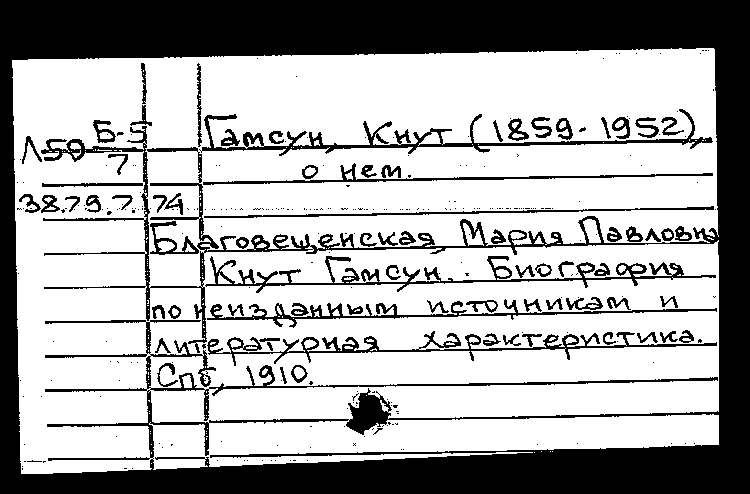 Л50 Б-5/7 Гамсун, Кнут (1859-1952),
о нем.
38.79.7.174
Благовещенская, Мария Павловна
Кнут Гамсун. Биография
по неизданным источникам и
литературная характеристика.
Спб, 1910.